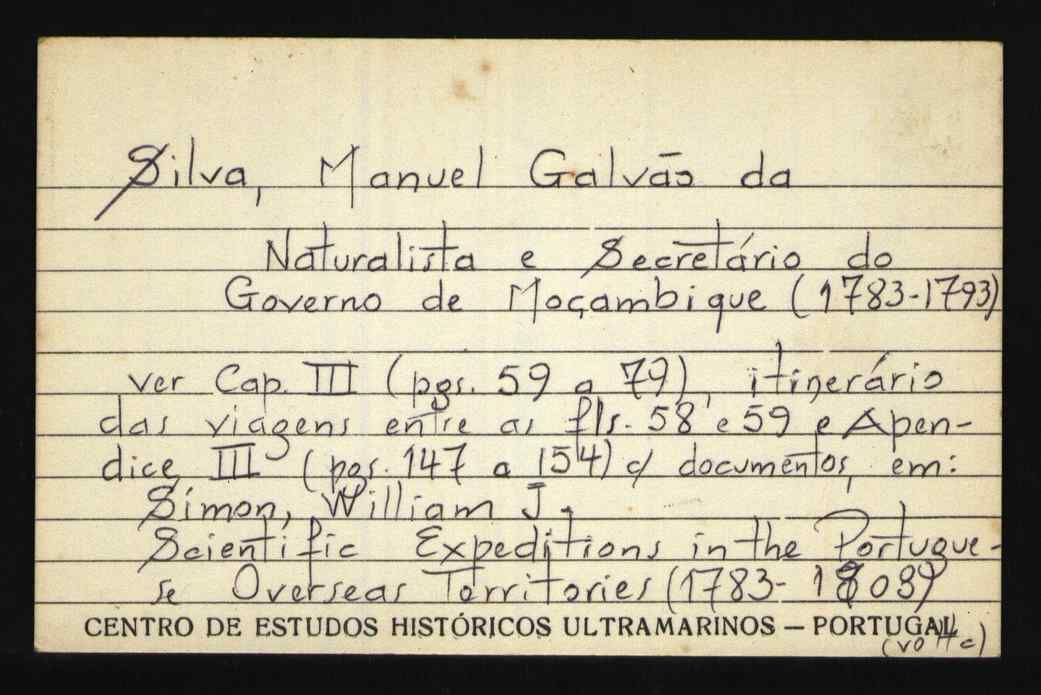 Silva, Manuel Galvão da
Naturalista e Secretário do
Governo de Moçambique (1783-1793)
ver Cap. III (pgs. 59 a 79), itinerário
das viagens entre as fls. 58 e 59 e Apen-
dice III (pgs. 147 a 154) c/ documentos, em:
Simon, William J.
Scientific Expeditions in the Portugue-
se Overseas Territories (1783-1808)
CENTRO DE ESTUDOS HISTÓRICOS ULTRAMARINOS — PORTUGAL
(volta)